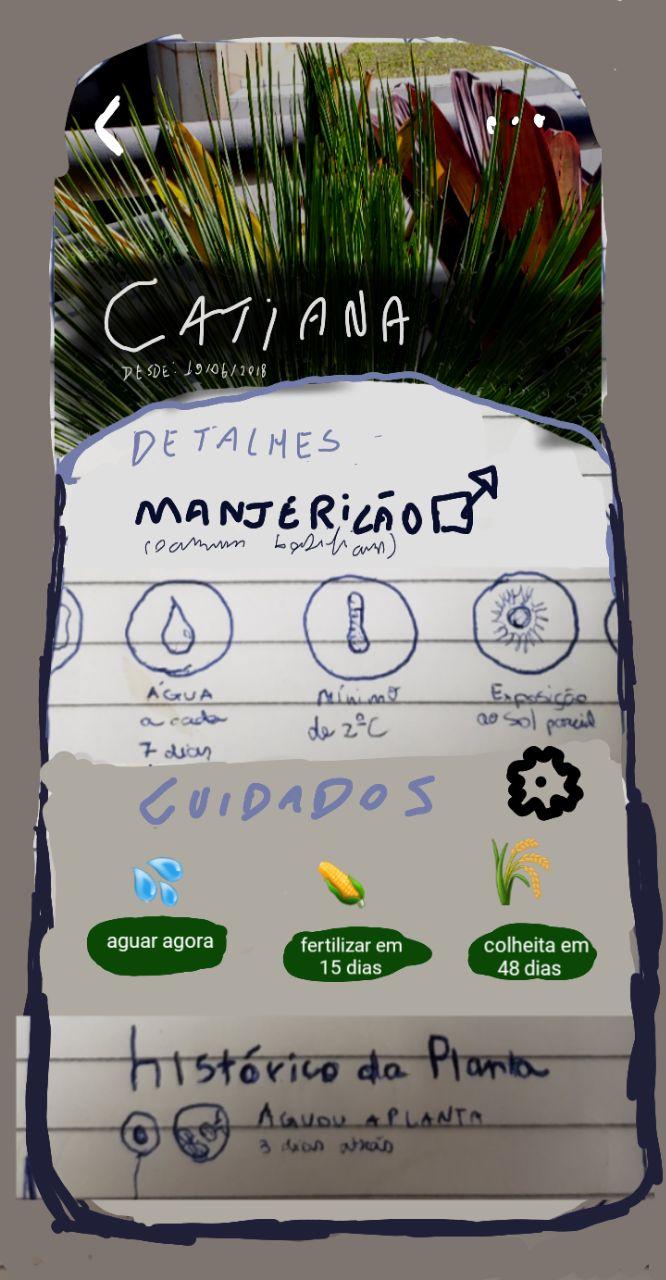 CATIANA
DESDE: 19/06/2018
DETALHES
MANJERICÃO
ÁGUA
a cada
7 dias
Mínimo
de 2ºC
Exposição
ao sol parcial
CUIDADOS
aguar agora
fertilizar em
15 dias
colheita em
48 dias
histórico da Planta
AGUOU A PLANTA
3 dias atrás